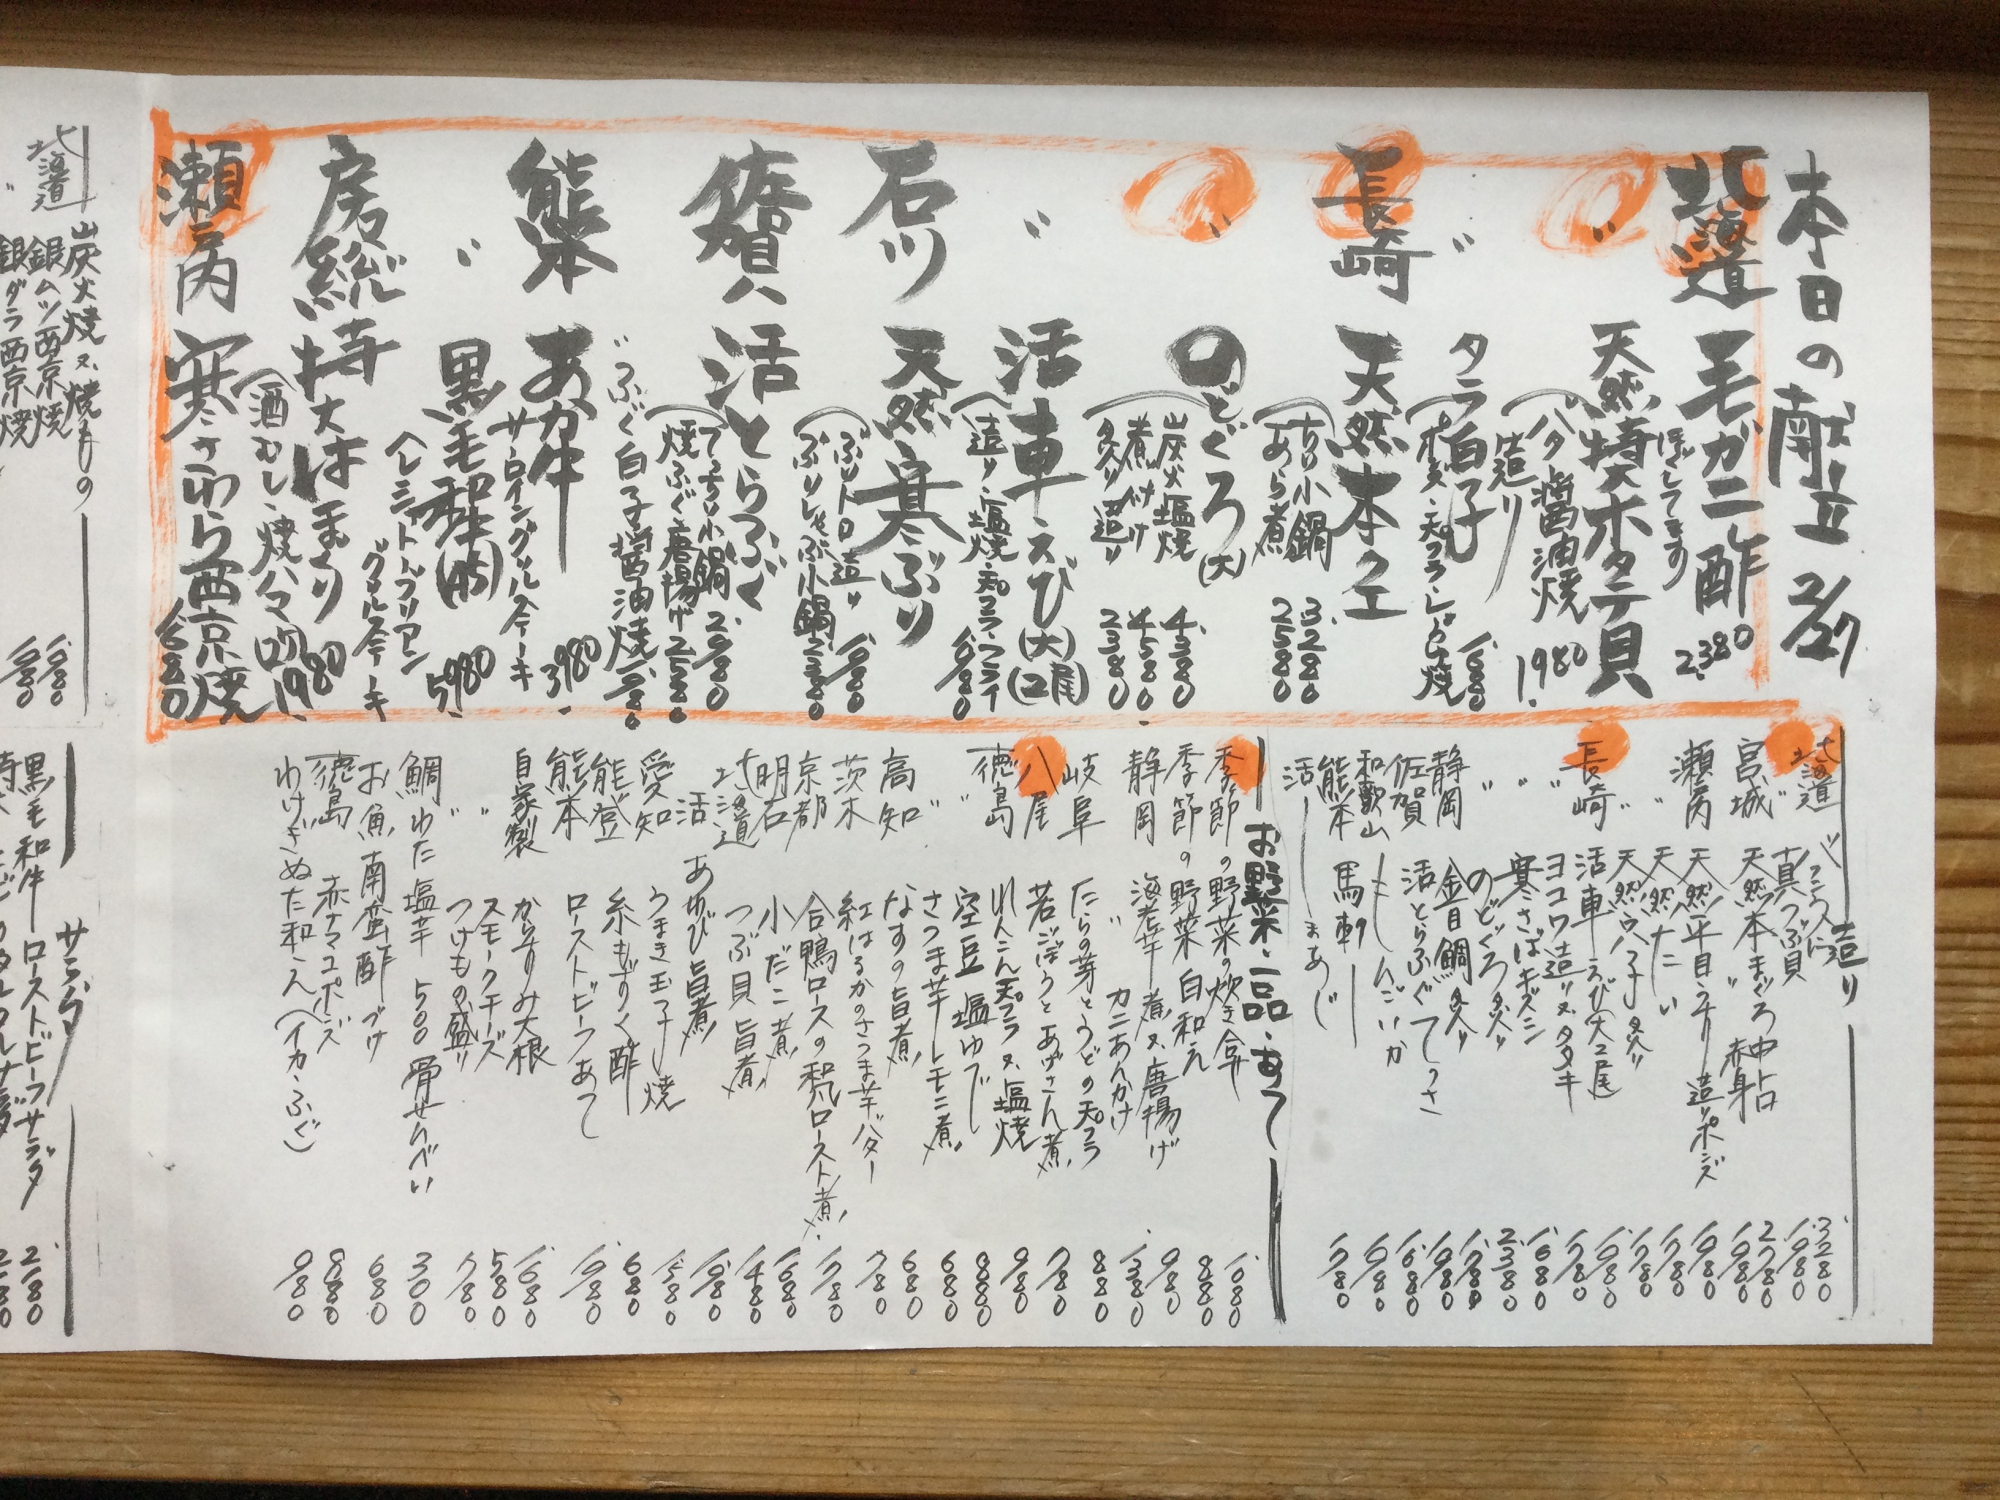 本日の献立 2/27
北海道 毛ガニ酢 2.380
ほぐしてます
〃 天然特大ホタテ貝
バタ醤油焼 1980
造り
〃 タラ白子
ポン酢・天プラ・しょうゆ焼 1.680
長崎 天然本クエ
ちり小鍋 3.280
あら煮 2580
〃 のどぐろ(大)
炭火塩焼 4.380
煮付け 4.580
炙り造り 2380
〃 活車えび(大)(2尾)
造り・塩焼・天プラ・フライ 1.980
石川 天然寒ぶり
ぶりトロ造り 1.980
ぶりしゃぶ小鍋 2.380
佐賀 活とらふぐ
てっちり小鍋 2.980
焼ふぐ・唐揚げ 2.580
〃ふぐ白子醤油焼 1.980
熊本 あか牛
サーロイングリルステーキ 3.980
〃 黒毛和牛(A5)
ヘレシャトーブリアン
グリルステーキ 5.980
房総 特大はまぐり
(酒むし・焼ハマ(2ケ) 1.980
瀬戸内 寒さわら西京焼 1.680
造り
北海道 バフンウニ 3280
〃 真つぶ貝 1.980
宮城 天然本まぐろ 中トロ 2780
〃 赤身 1.980
瀬戸内 天然平目 造り ポン酢 1.980
〃 天然たい 1.780
〃 天然 炙り 1.780
長崎 活車えび(大)2尾 1.980
〃 ヨコワ造り又タタキ 1.780
〃 寒さばキズシ 1.680
〃 のどぐろ炙り 2.380
静岡 金目鯛炙り 1.980
佐賀 活とらふぐてっさ 1.980
和歌山 もんごいか 1.680
熊本 馬刺 1.980
活 まあじ 1.780
お野菜・一品・あて
季節の野菜の炊き合せ 1.080
季節の野菜 白和え 880
静岡 海老芋 煮又唐揚げ 980
〃 カニあんかけ 1.380
岐阜 たらの芽とうどの天プラ 880
八尾 若ごぼうとあげさん煮 780
徳島 れんこん天プラ又塩焼 980
〃 空豆 塩ゆで 880
〃 さつま芋レモン煮 680
高知 なすの旨煮 680
茨木 紅はるかのさつま芋バター 780
京都 合鴨ロースの和風ロースト煮 1.780
明石 小だこ煮 1.680
北海道 つぶ貝 旨煮 1.480
活 あわび 旨煮 1.980
愛知 うまき玉子焼 1.580
能登 糸もずく酢 680
熊本 ローストビーフあて 1.980
自家製 からすみ大根 1.680
〃 スモークチーズ 580
〃 つけもの盛り 780
鯛わた塩辛 500 骨せんべい 300
お魚南蛮酢づけ 680
徳島 赤ナマコポン酢 880
わけぎぬた和え(イカ・ふぐ) 980
炭火焼又焼もの
北海道 銀ムツ西京焼 1.680
〃 銀ダラ西京焼 1.980
サラダ
黒毛和牛ローストビーフサラダ 2.180